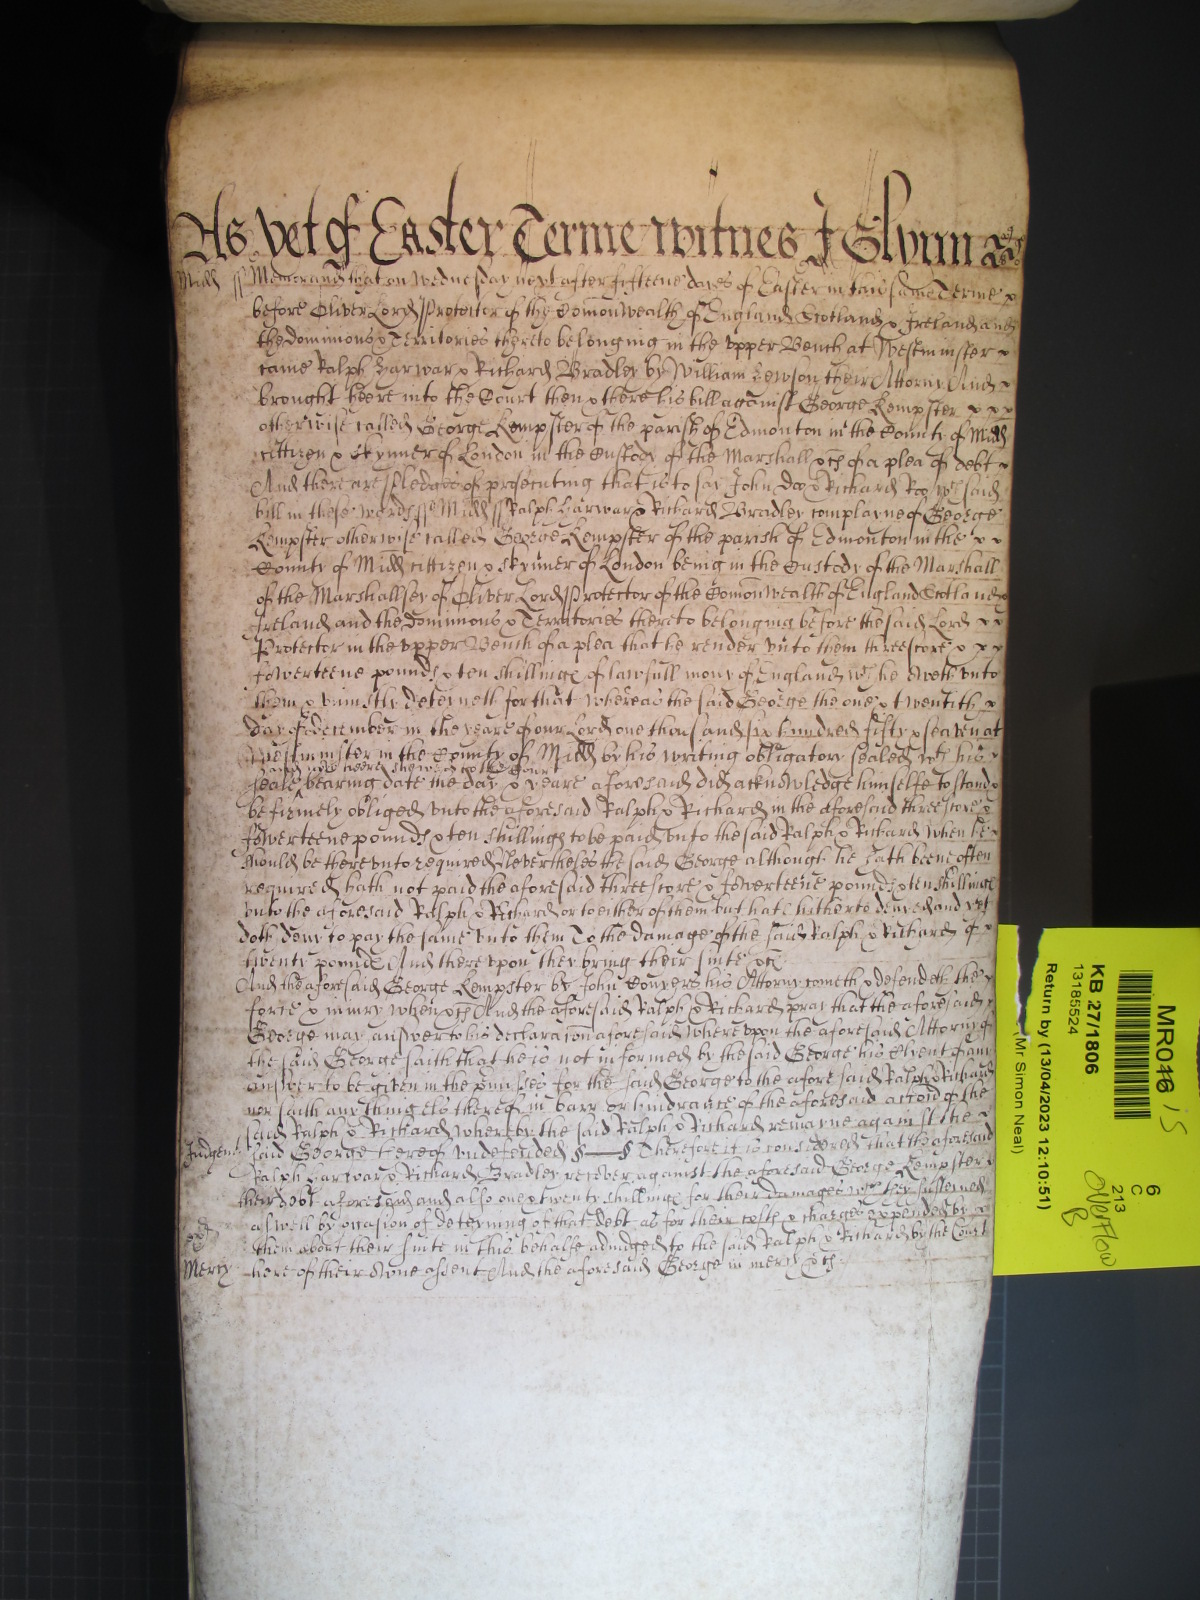 As yet of Easter Terme witnes J Glynn
Midd ss Memorand that on Wednesday next after fifteene dayes of Easter in this same Terme
before Oliver Lord Protector of the Comonwealth of England Scotland & Ireland and
the dominions & Territories thereto belonging in the upper Bench at Westminster
came Ralph Harwar & Richard Bradley by William Hewson their Attorny And
brought heere into the Court then & there his bill against George Kempster
otherwise called George Kempster of the parish of Edmonton in the County of Midd
cittizen & Skynner of London in the Custody of the Marshall &c of a plea of debt
And there are pledges of prosecuting that is to say John Doo & Richard Roo wch said
bill in these words ss Midd ss Ralph Harwar & Richard Bradley complayne of George
Kempster otherwise called George Kempster of the parish of Edmonton in the
County of Midd cittizen & Skynner of London being in the Custody of the Marshall
of the Marshallsey of Oliver Lord Protector of the Comonwealth of England Scotland
Ireland and the dominions & Territories thereto belonging before the said Lord
Protector in the upper Bench of a plea that he render unto them threescore &
fowerteene pounds & ten shillings of lawfull mony of England wch he oweth unto
them & uniustly deteineth for that whereas the said George the one & twentith
day of december in the yeare of our Lord one thousand six hundred fifty & seaven at
Westminster in the County of Midd by his writing obligatory sealed wth his
and now heere shewed to the Court
seale bearing date the day & yeare aforesaid did acknowledge himselfe to stand
be firmely obliged unto the aforesaid Ralph & Richard in the aforesaid threescore &
fowerteene pounds & ten shillings to be paid unto the said Ralph & Richard when he
should be thereunto required Neverthelesse the said George although he hath beene often
required hath not paid the aforesaid threescore & fowerteene pounds & ten shillings
unto the aforesaid Ralph & Richard or to either of them but hath hitherto denyed and yet
doth deny to pay the same unto them To the damage of the said Ralph & Richard of
twenty pounds And thereupon they bring their suite &c
And the aforesaid George Kempster by John Conyers his Attorny cometh & defendeth the
force & iniury when &c And the aforesaid Ralph & Richard pray that the aforesaid
George may answer to his declaracon aforesaid Whereupon the aforesaid Attorny of
the said George saith that he is not informed by the said George his Clyent of any
answer to be given in the pmisses for the said George to the aforesaid Ralph & Richard
nor saith any thing els thereof in barr or hindrance of the aforesaid accon of the
said Ralph & Richard whereby the said Ralph & Richard remayne against the
Judgent said George thereof undefended § § Therefore it is considered that the aforesaid
Ralph Harwar & Richard Bradley recover against the aforesaid George Kempster
their debt aforesaid and also one & twenty shillings for their damages wch they susteined
aswell by occasion of deteyning of that debt as for their costs & charges expended by
them about their suite in this behalfe adiudged to the said Ralph & Richard by the Court
Mercy here of their owne assent And the aforesaid George in mercy &c
MR046 15
KB 27/1806
13185524
Return by (13/04/2023 12:10:51)
Mr Simon Neal)
6
C
213
Overflow
B